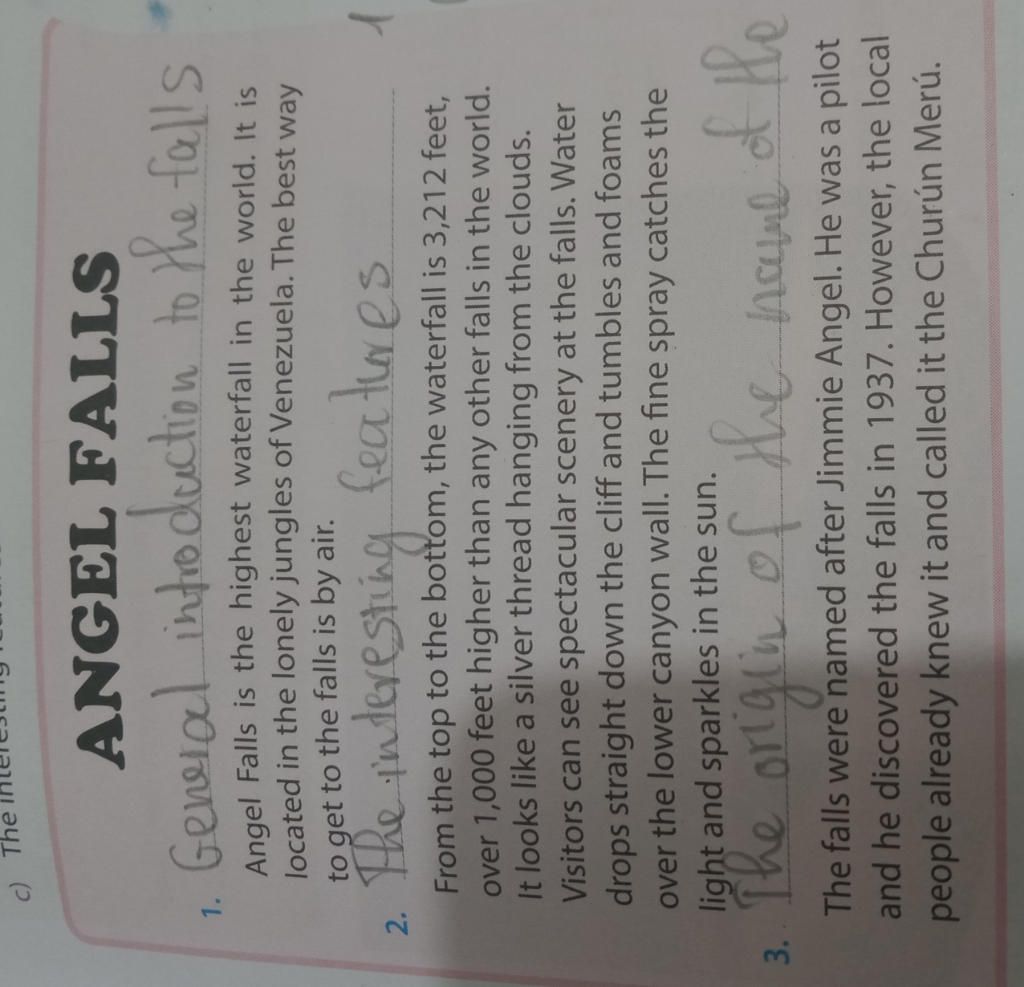 c) The interesting
ANGEL FALLS
1. General introduction to the falls
Angel Falls is the highest waterfall in the world. It is
located in the lonely jungles of Venezuela. The best way
to get to the falls is by air.
2. The interesting features
From the top to the bottom, the waterfall is 3,212 feet,
over 1,000 feet higher than any other falls in the world.
It looks like a silver thread hanging from the clouds.
Visitors can see spectacular scenery at the falls. Water
drops straight down the cliff and tumbles and foams
over the lower canyon wall. The fine spray catches the
light and sparkles in the sun.
3. The origin of the name of the
The falls were named after Jimmie Angel. He was a pilot
and he discovered the falls in 1937. However, the local
people already knew it and called it the Churún Merú.